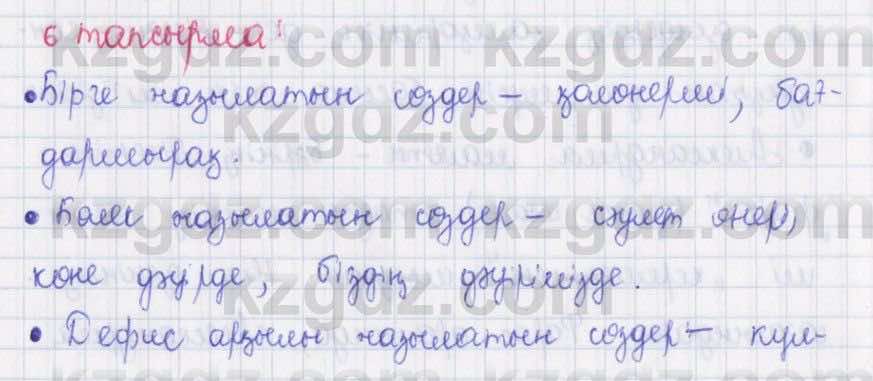 6 тапсырма:
• Бірге жазылатын сөздер – қолөнерші, бағ-
даршырақ.
• Бөлек жазылатын сөздер – сәулет өнері,
көне дәуірде, біздің дәуірімізде.
• Дефис арқылы жазылатын сөздер – күл-